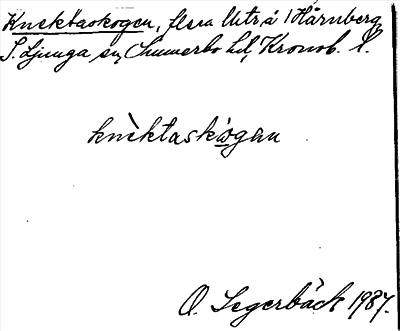 Knektaskogen, flera lutr. å 1 Hårnberg
S. Ljunga sn, Sunnerbo hd, Kronob. l.
knèktaskωgan
O. Segerbäck 1937.